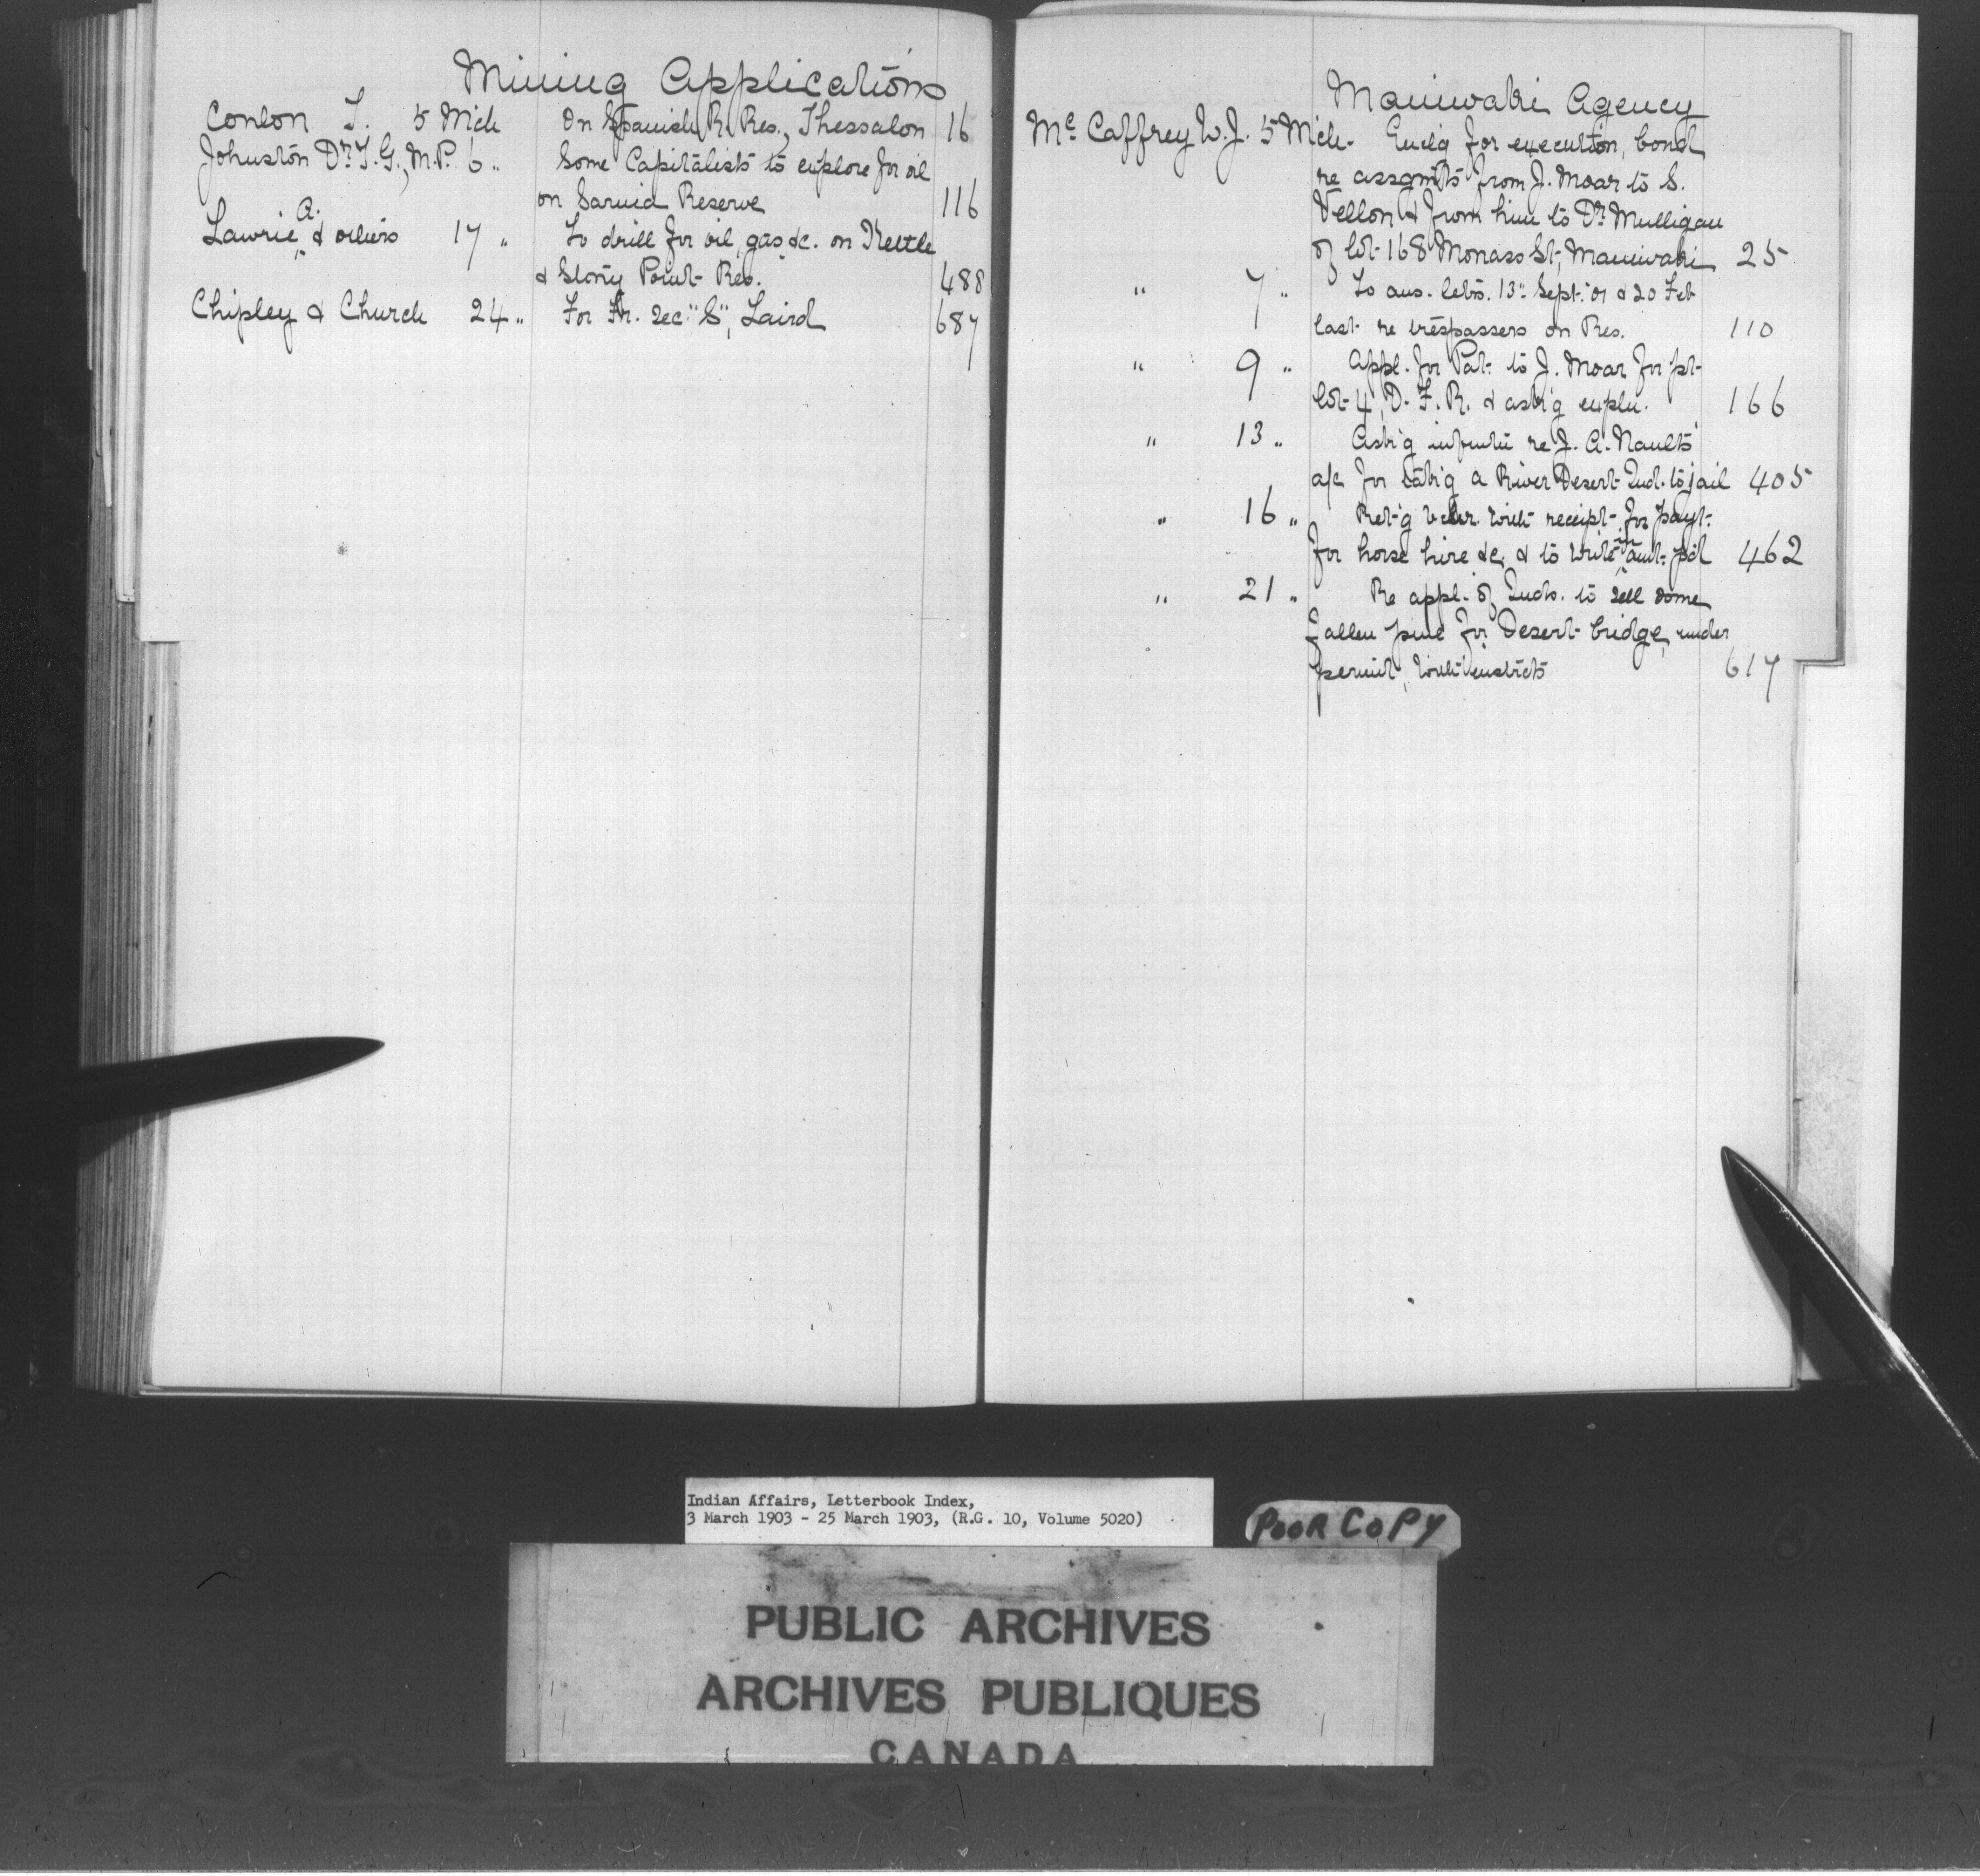 Mining Applications
Conlon T. 5 Mch On Spanish R. Res., Thessalon 16
Johnston Dr. T. G., M.P. 6 " Some Capitalists to explore for oil
on Sarnia Reserve 116
Lawrie, A. & others 17 " To drill for oil, gas &c. on Kettle
& Stony Point Res. 488
Chipley & Church 24 " For Fr. Sec. "S", Laird 687
Maniwaki Agency
McCaffrey W. J. 5 Mch. Encl'g for execution, bond
re assgmts from J. Moar to S.
& from him to Dr. Mulligan
of lot 168 St, Maniwaki 25
" 7 " To ans. letrs. 13" Sept. '01 & 20 Feb
last re trespassers on Res. 110
" 9 " Appl. for Pat. to J. Moar for pt
lot 4, D. F. R. & ask'g expln. 166
" 13 " Ask'g re J. A. Naults
a/c for tak'g a River Desert Ind. to jail 405
" 16 " Ret'g vchr. with receipt for payt.
for horse hire &c. & to write in amt. pd 462
" 21 " Re appl. of Inds. to sell some
fallen pine for Desert bridge, under
permit, with instrcts 617
Indian Affairs, Letterbook Index,
3 March 1903 - 25 March 1903, (R.G. 10, Volume 5020)
POOR COPY
PUBLIC ARCHIVES
ARCHIVES PUBLIQUES
CANADA